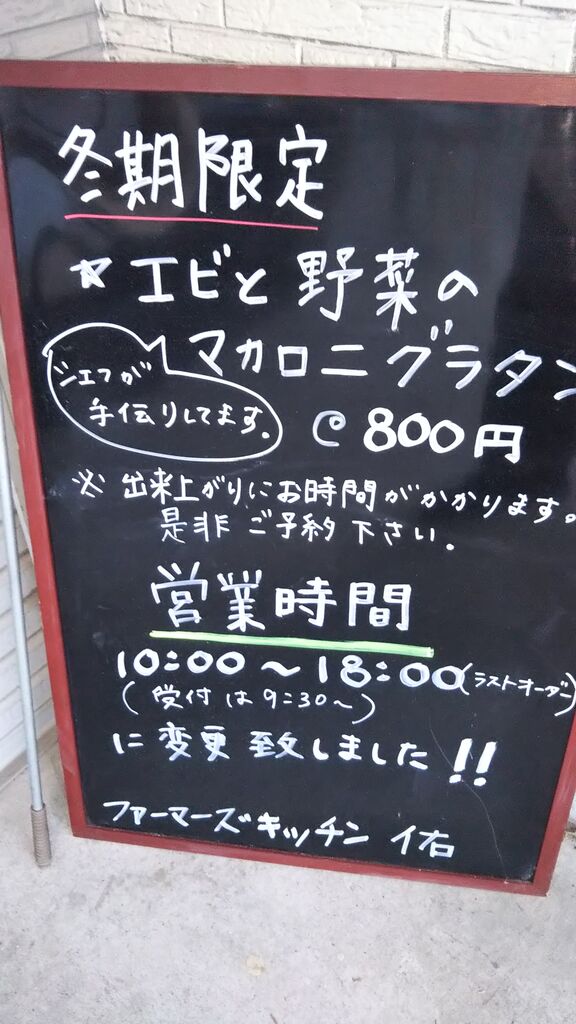 冬期限定
☆エビと野菜の
マカロニグラタン
シェフが
手伝りしてます。
@800円
※出来上がりにお時間がかかります。
是非ご予約下さい。
営業時間
10:00～18:00(ラストオーダー)
(受付は9:30～)
に変更致しました!!
ファーマーズキッチン 佑